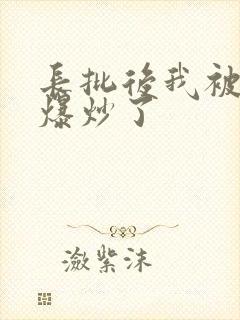 長批後我被
爆炒了
瀲紫沫